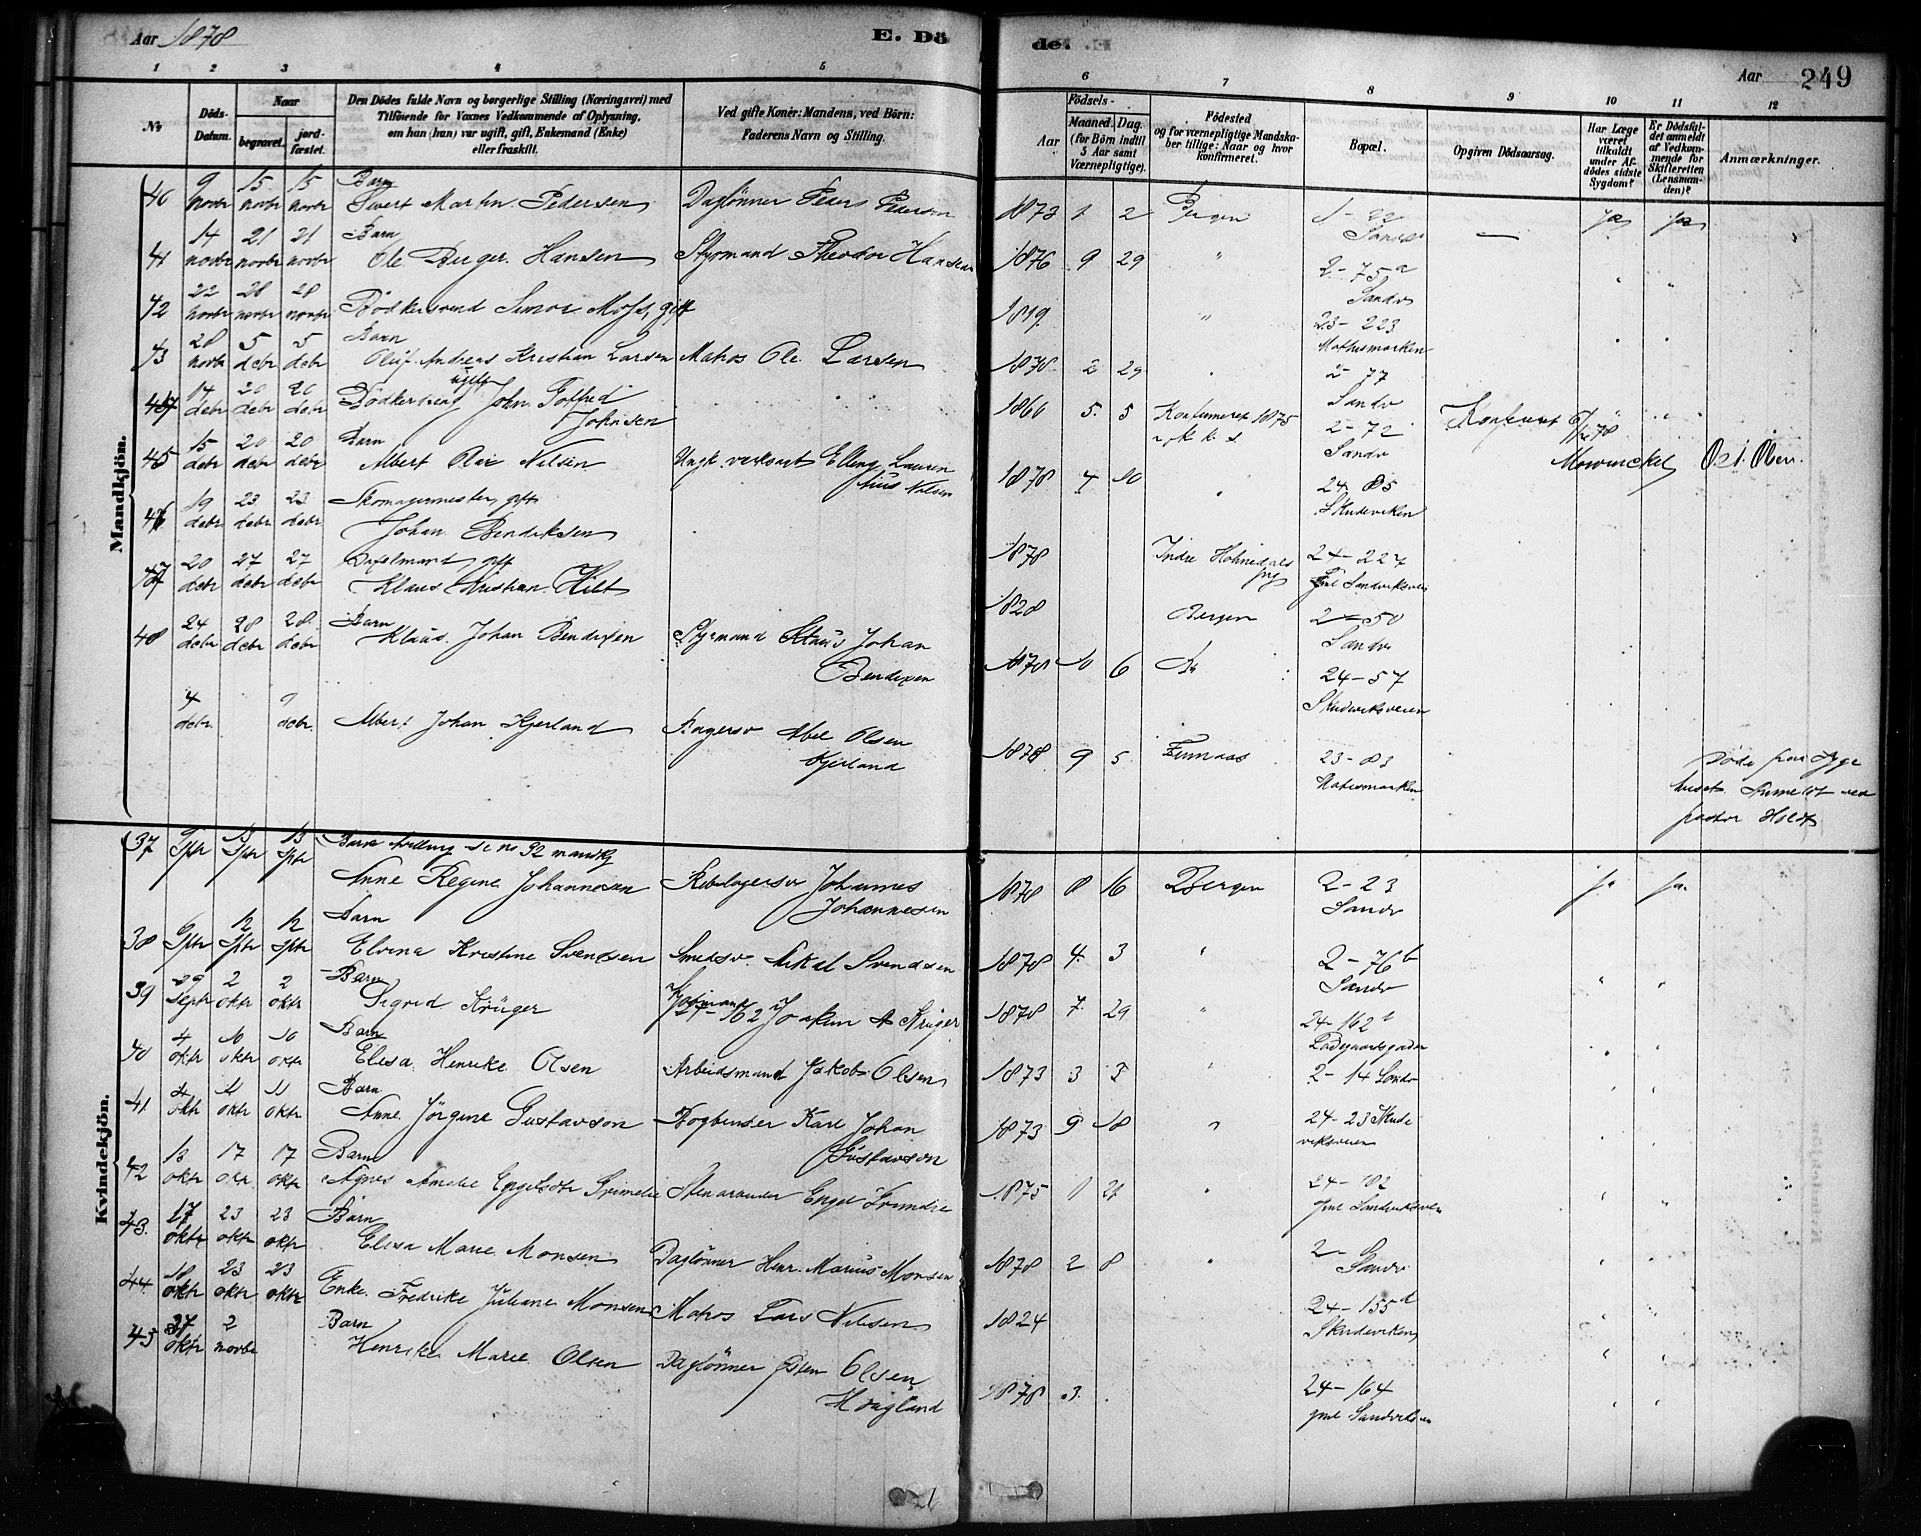 Aar 1878
E. Dö
de.
Aar 249
1 2 3 4 5 6 7 8 9 10 11 12
No
Döds-Datum.
Naar
begravet.
jord-fæstet.
Den Dödes fulde Navn og borgerlige Stilling (Næringsvei) med
Tilföiende for Voxnes Vedkommende af Oplysning,
om han (hun) var ugift, gift, Enkemand (Enke)
eller fraskilt.
Ved gifte Koner: Mandens, ved Börn:
Faderens Navn og Stilling.
Födsels-
Aar
Maaned. Dag.
(for Börn indtil
5 Aar samt
Værnepligtige).
Födested
og for værnepligtige Mandska-
ber tillige: Naar og hvor
konfirmeret.
Bopæl.
Opgiven Dödsaarsag.
Har Læge
været
tilkaldt
under Af-
dödes sidste
Sygdom?
Er Dödsfal-
det anmeldt
af Vedkom-
mende for
Skifteretten
(Lensman-
den)?
Anmærkninger.
Mandkjön.
40 9 novbr 15 novbr 15 novbr Barn
Sivert Martin Pedersen Daglönner Peder Pederson 1873 1 2 Bergen 1-22 Sandv — Ja Ja
41 14 novbr 21 novbr 21 novbr Barn
Ole Berger Hansen Styrmand Theodor Hansen 1876 9 29 " 2-75a Sandv " "
42 22 novbr 28 novbr 28 novbr Bödkersvend Simon Moss, gift 1819 " 23-223 Mathismarken " "
43 28 novbr 5 debr 5 debr Barn
Oluf Andreas Kristian Larsen Matros Ole Larsen 1878 2 29 " 2-77 Sandv
14 debr 20 debr 20 debr ugift
John Gotfred
Johnsen 5. 5 Konfirmeret 1875 2-72 Sandv
Mowinckel
45 15 debr 20 debr 20 debr Barn
Albert Olai Nilsen Ungk. Elling Laurentius Nilsen 1878 7 10 " 24 85 Skudeviken
46 19 debr 23 debr 23 debr Skomagermester, gift
Johan Bendiksen 24-227 Gml Sandviksvei
47 20 debr 27 debr 27 debr gift
Klaus Kristian Hilt 1828 Bergen 2-50 Sandv
48 24 debr 28 debr 28 debr Barn
Klaus Johan Bendixen Styrmand Klaus Johan
Bendixen 1878 10 6 24-57
Skudeviksveien
4 debr. 9 debr. Albert Johan Kjerland Bagersv Abel Olsen
Kjerland 1878 9 5 Finnaas 23-83
Mathismarken Döde paa Syge
huset. Anmeldt ved
pastor Holdt
Kvindekjön.
37 9 Sptr 13 Sptr 13 Sptr Barn tvilling se no 32 mandkj
Anne Regine Johannesen Rebslagersv Johannes
Johannesen 1878 8 16 Bergen 2-23
Sandv Ja Ja
38 9 Sptr 12 Sptr 12 Sptr Barn
Elvina Kristine Svendsen Smedsv. Mikal Svendsen 1878 4. 3 " 2-76b
Sandv
39 29 Septr 2 oktr 2 oktr Barn
Sigrid Krüger Kjöbmand
24-162 Joakim A Krüger 1878 7. 29 " 24-162
Ladegaardsgaden " "
40 4 oktr 10 oktr 10 oktr Barn
Elisa Henrike Olsen Arbeidsmand Jakob Olsen 1873 3 3 " 2-14 Sandv " "
41 4 oktr 11 oktr 11 oktr Barn
Anne Jörgine Gustavson Bogbinder Karl Johan
Gustavson 1873 9 18 " 24-23 Skude
viksveien " "
42 13 oktr 17 oktr 17 oktr Barn
Agnes Amalie Engelsdtr Engel 1875 1 21 " 24-182
gml Sandviksvei " "
43. 17 oktr 23 oktr 23 oktr Barn
Elisa Marie Monsen Daglönner Henr. Marius Monsen 1878 2 8 " 2- Sandv " "
44. 18 oktr 23 oktr 23 oktr Enke. Fredrike Juliane Monsen Matros Lars Nilsen 1824 24-155d
Skudeviken " "
45 27 oktr 2 novbr Barn
Henrike Marie Olsen Daglönner Östen Olsen
Hougland 1878 3. 24-164
gml Sandviksv " "